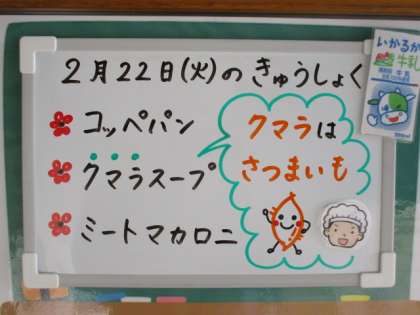 2月22日(火)のきゅうしょく
コッペパン
クマラスープ
ミートマカロニ
クマラは
さつまいも
いかるが
牛乳